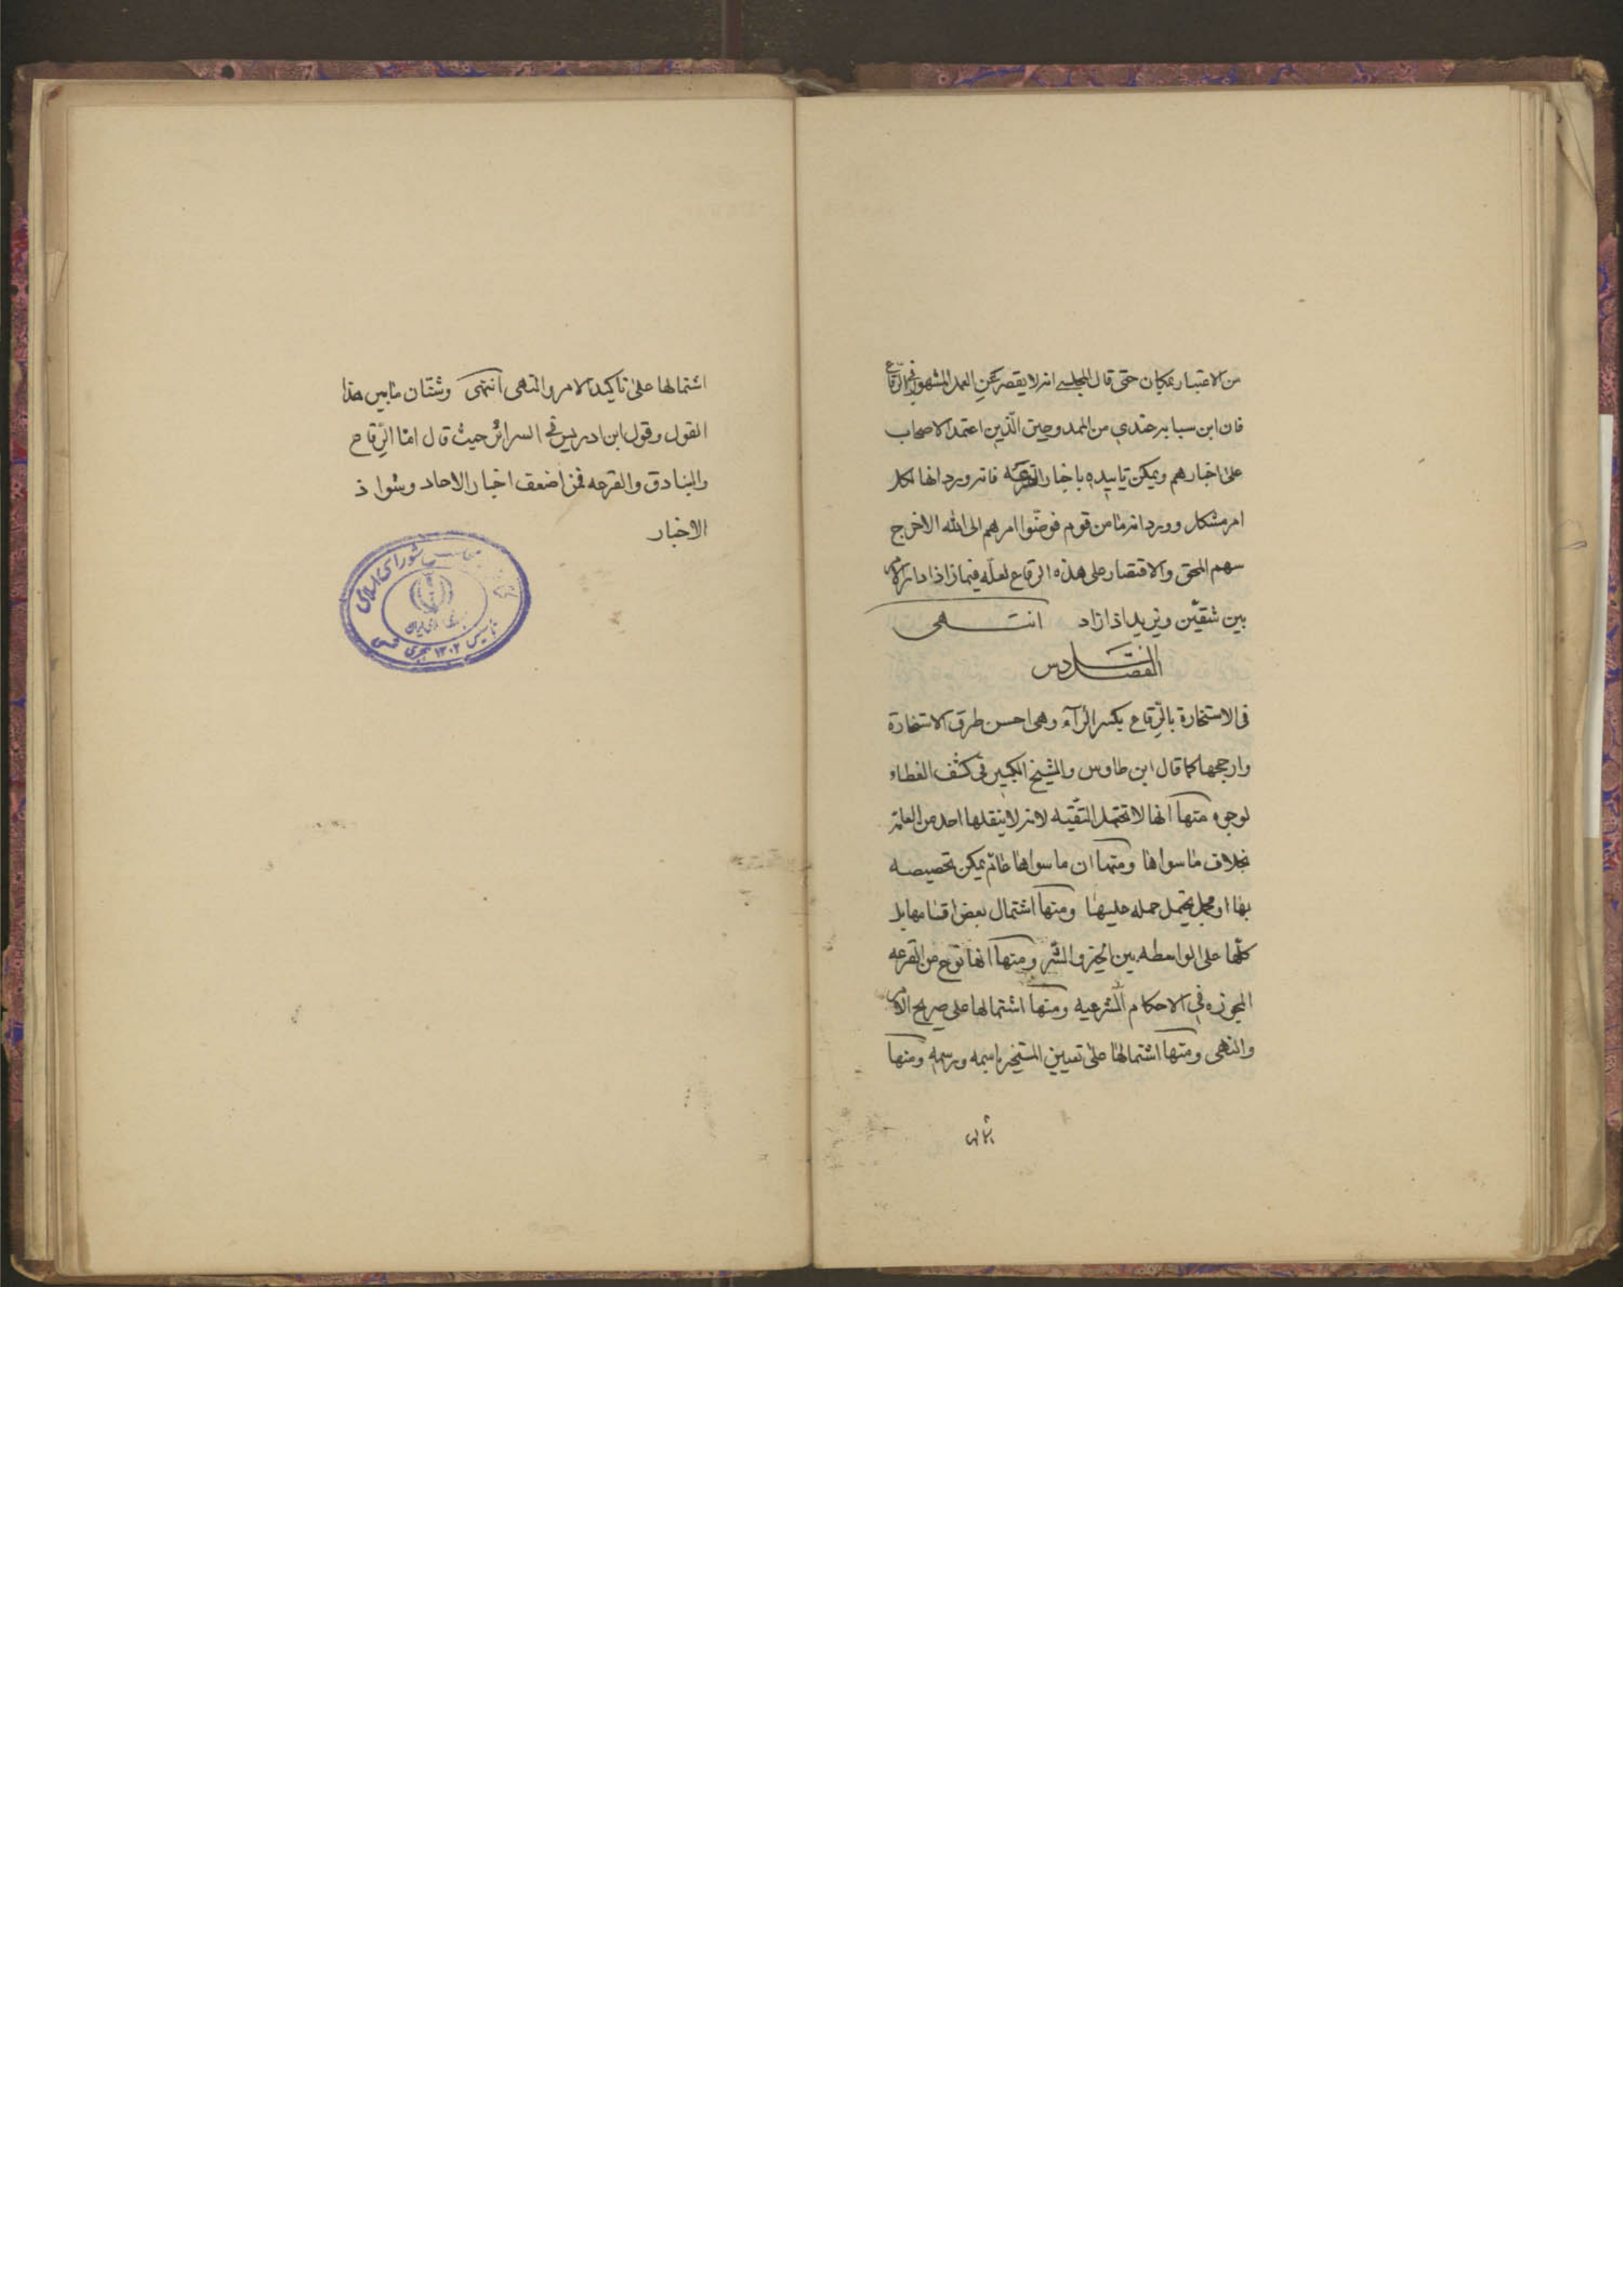 من الاعتبار بمكان حتى قال المجلسے انه لا يقصر عن العمل المشهور فى الرّقاع
فان ابن سبابه عندى من الممدوحين الّذين اعتمد الاصحاب
على اخبارهم ويمكن تاييده باخبار القرعه فانه ورد انها لكل
امر مشكل وورد انه ما من قوم فوضّوا امرهم الى الله الا خرج
سهم المحق والاقتصار على هذه الرقاع لعلّه فيما اذا دار الامر
بين شقيّن ويزيد اذا زاد انتهى
الفصل السادس
فى الاستخارة بالرِّقاع بكسر الرآء وهى احسن طرق الاستخارة
وارجحها كما قال ابن طاوس والشيخ الكبير فى كشف الغطاء
لوجوه منها انها لا تحتمل التّقيه لانه لا ينقلها احد من العامّه
بخلاف ما سواها ومنها ان ما سواها عامّ يمكن تخصيصه
بها او مجمل يحتمل حمله عليها ومنها اشتمال بعض اقسامها بل
كلّها على الواسطه بين الخير والشّر ومنها انها نوع من القرعه
المجوزه فى الاحكام الشرعيه ومنها اشتمالها على صريح الامر
والنهى ومنها اشتمالها على تعيين المستخير باسمه ورسمه ومنها
اشتمالها على تاكيد الامر والنهى انتهى وشتان ما بين هذا
القول وقول ابن ادريس فى السرائر حيث قال امّا الرِّقاع
والبنادق والقرعه فمن اضعف اخبار الاحاد وشواذ
الاخبار
شوراى اسلامى
تاسيس ۱۳۰۲ هجرى شمسى